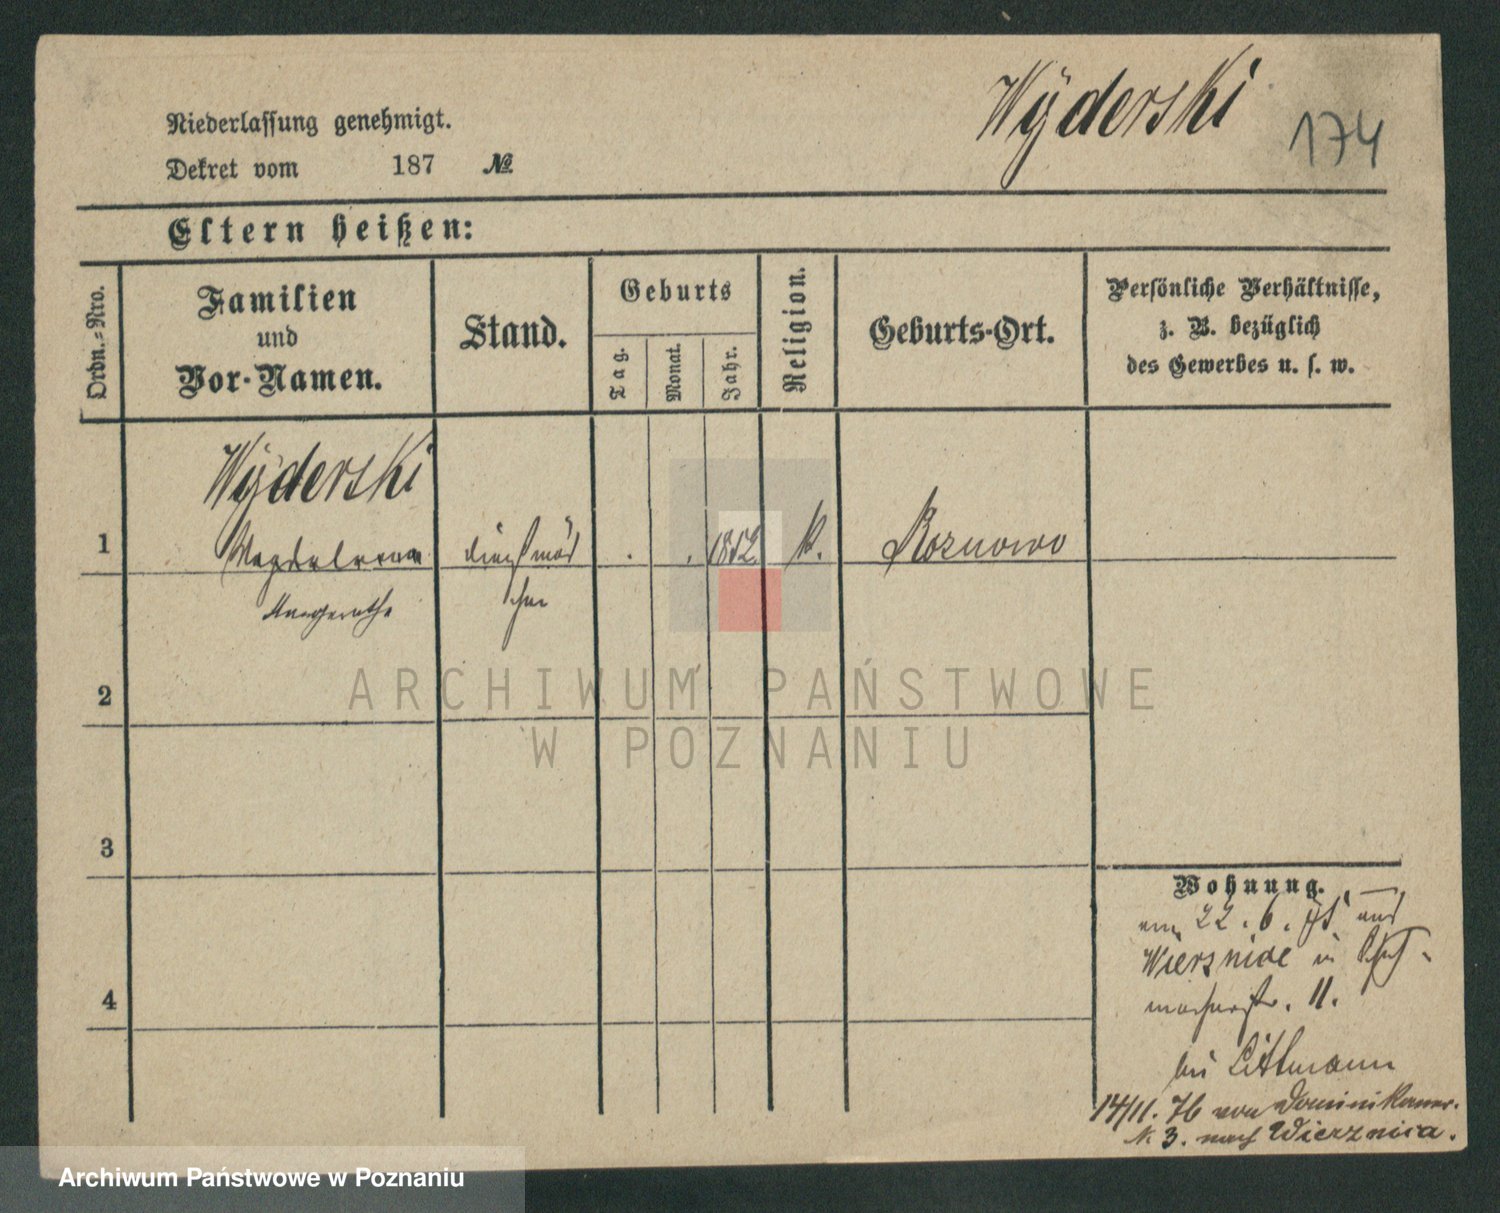 Wÿderski
174
Niederlassung genehmigt.
Dekret vom 187 №
Eltern heißen:
Ordn.-Nro.
Familien
und
Vor-Namen.
Stand.
Geburts
Tag.
Monat.
Jahr.
Religion.
Geburts-Ort.
Persönliche Verhältnisse,
z. B. bezüglich
des Gewerbes u. s. w.
Wÿderski
1 Magdalena dienstmäd 1852 k. Roznowo
Margarethe chen
2
ARCHIWUM PAŃSTWOWE
W POZNANIU
3
Wohnung.
22. 6. 75
Wiersnice in
11.
4
bei Littmann
14/11. 76 von Dominikaner.
N. 3. nach Wierznica.
Archiwum Państwowe w Poznaniu